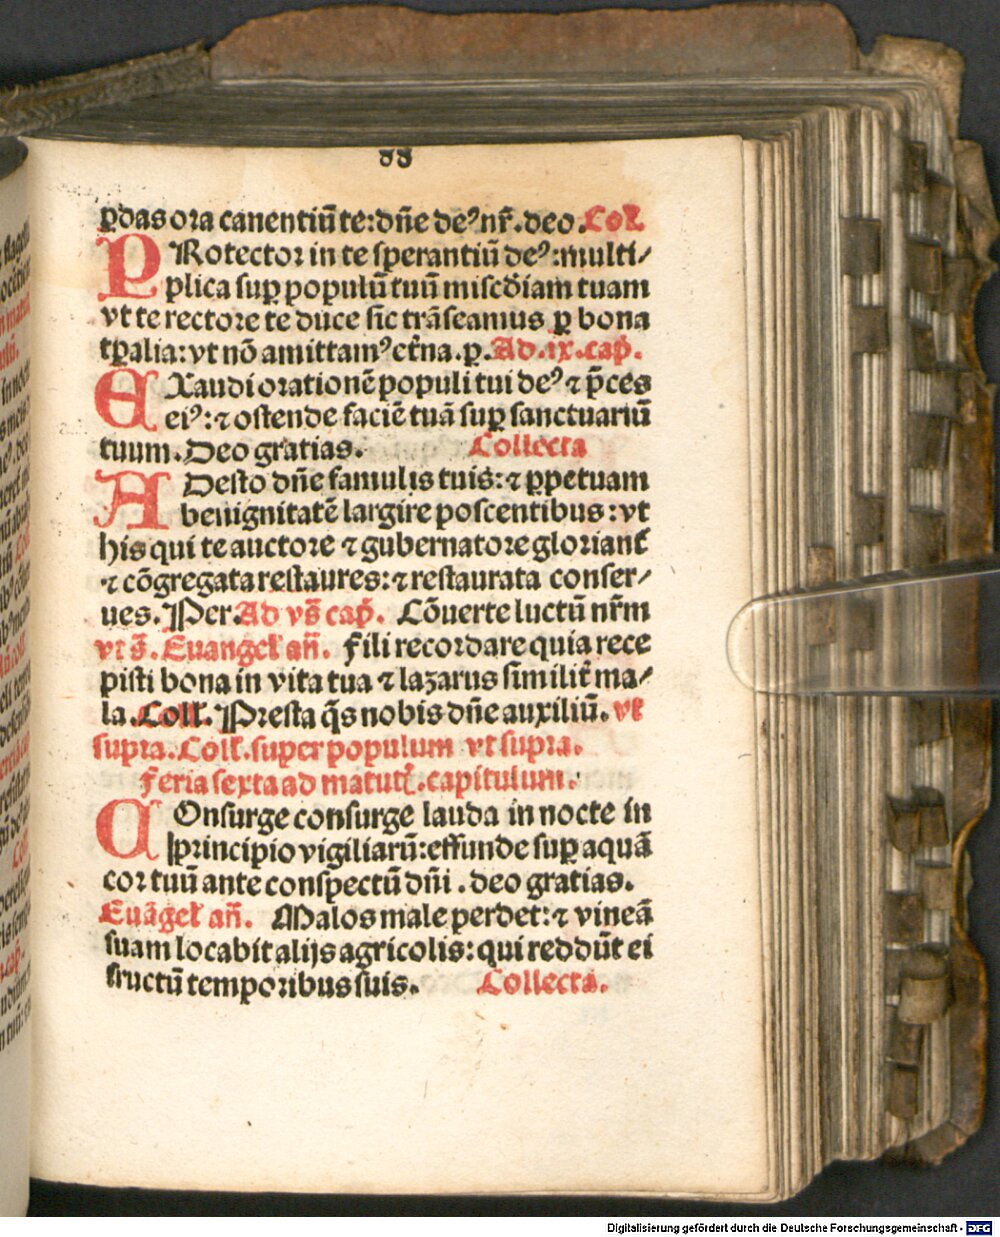 88
ꝑdas ora canentiũ te: dñe deꝰ nr̃. deo. Col̃.
PRotector in te sperantiũ deꝰ: multi/
plica suꝑ populũ tuũ miscd̃iam tuam
vt te rectore te duce sic trãseamus ꝑ bona
tꝑalia: vt nõ amittamꝰ et̃na. ꝑ. Ad .ix. cap̃.
EXaudi orationẽ populi tui deꝰ ⁊ p̃ces
eiꝰ: ⁊ ostende faciẽ tuã suꝑ sanctuariũ
tuum. Deo gratias. Collecta
ADesto dñe famulis tuis: ⁊ ꝑpetuam
benignitatẽ largire poscentibus: vt
his qui te auctore ⁊ gubernatore gloriant̃
⁊ cõgregata restaures: ⁊ restaurata conser/
ues. Per. Ad vs̃ cap̃. Cõuerte luctũ nr̃m
vt s̃. Euangel̃ añ. Fili recordare quia rece
pisti bona in vita tua ⁊ lazarus similit̃ ma/
la. Coll̃. Presta q̃s nobis dñe auxiliũ. vt
supra. Coll̃. super populum vt supra.
Feria sexta ad matut̃. capitulum.
COnsurge consurge lauda in nocte in
principio vigiliarũ: effunde suꝑ aquã
cor tuũ ante conspectũ dñi. deo gratias.
Euãgel̃ añ. Malos male perdet: ⁊ vineã
suam locabit alijs agricolis: qui reddũt ei
fructũ temporibus suis. Collecta.
Digitalisierung gefördert durch die Deutsche Forschungsgemeinschaft - DFG